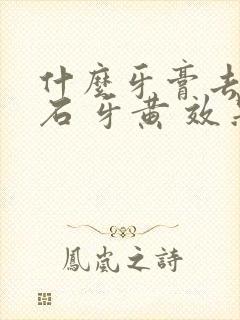 什麼牙膏去
石 牙黄 效
鳳嵐之詩